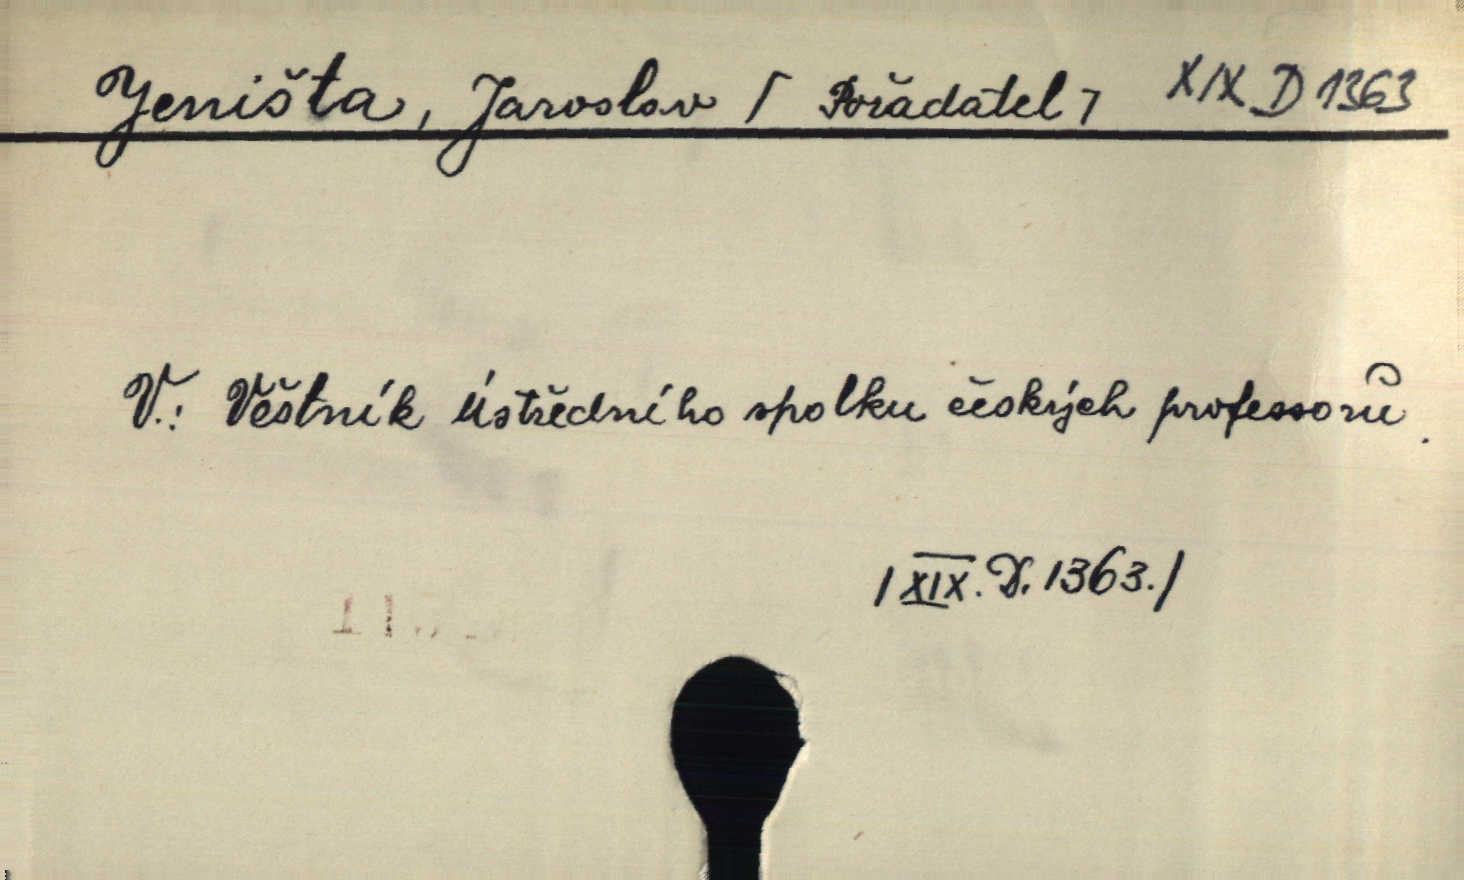 Jeništa, Jaroslav / Pořadatel / XIX D 1363
V.: Věstník Ústředního spolku českých professorů.
/ XIX. D. 1363. /